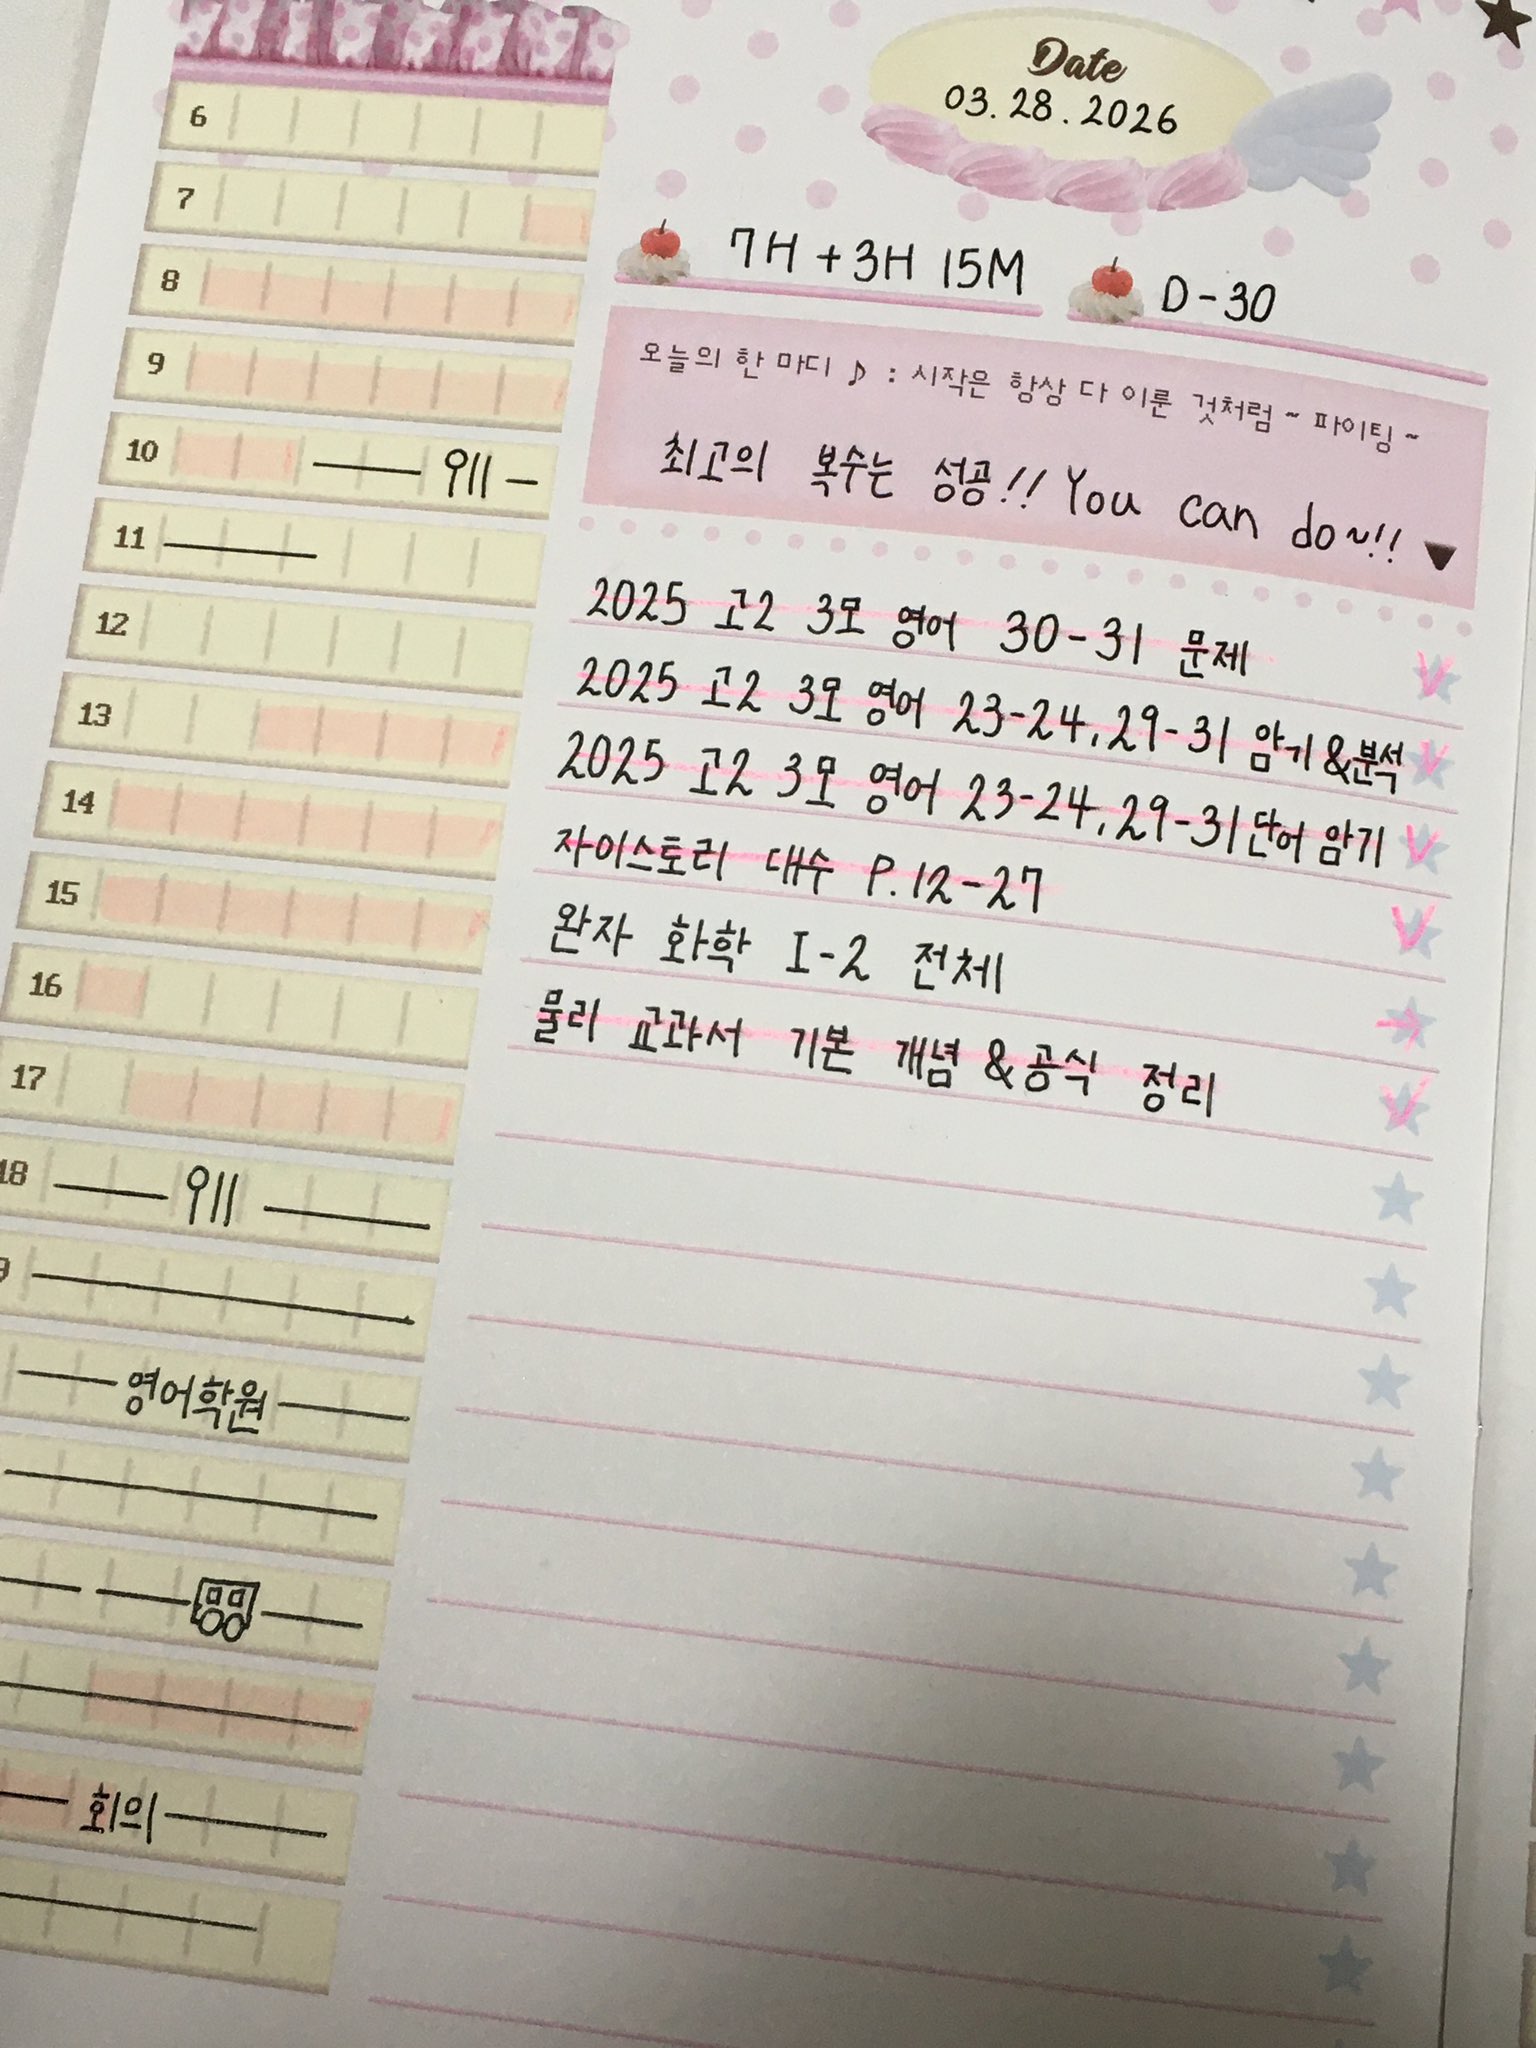 Date
03.28.2026
7H + 3H 15M
D-30
오늘의 한 마디 ♪ : 시작은 항상 다 이룬 것처럼~ 파이팅~
최고의 복수는 성공!! You can do~!!
2025 고2 3모 영어 30-31 문제
2025 고2 3모 영어 23-24, 29-31 암기&분석
2025 고2 3모 영어 23-24, 29-31 단어 암기
자이스토리 대수 P.12-27
완자 화학 I-2 전체
물리 교과서 기본 개념 & 공식 정리
6
7
8
9
10
11
12
13
14
15
16
17
18
영어학원
회의